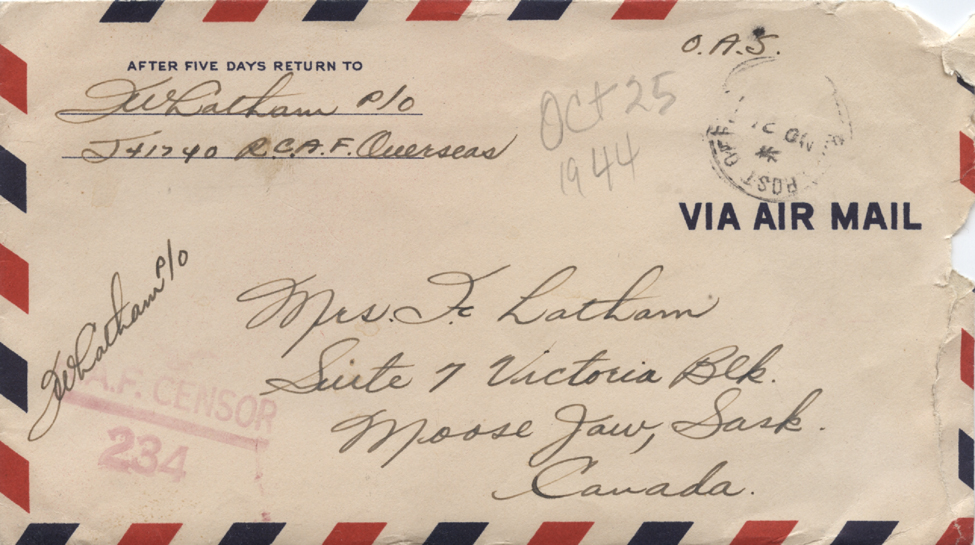 O.A.S.
AFTER FIVE DAYS RETURN TO
JWLatham P/O
J41740 R.C.A.F. Overseas
Oct 25
1944
POST OFF
VIA AIR MAIL
JWLatham P/O
Mrs. F. Latham
Suite 7 Victoria Blk.
Moose Jaw, Sask.
Canada.
A.F. CENSOR
234